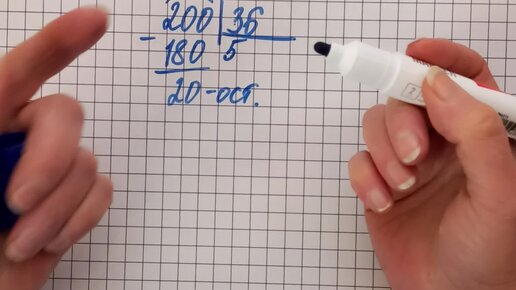 200 36
- 180 5
20 - ост.